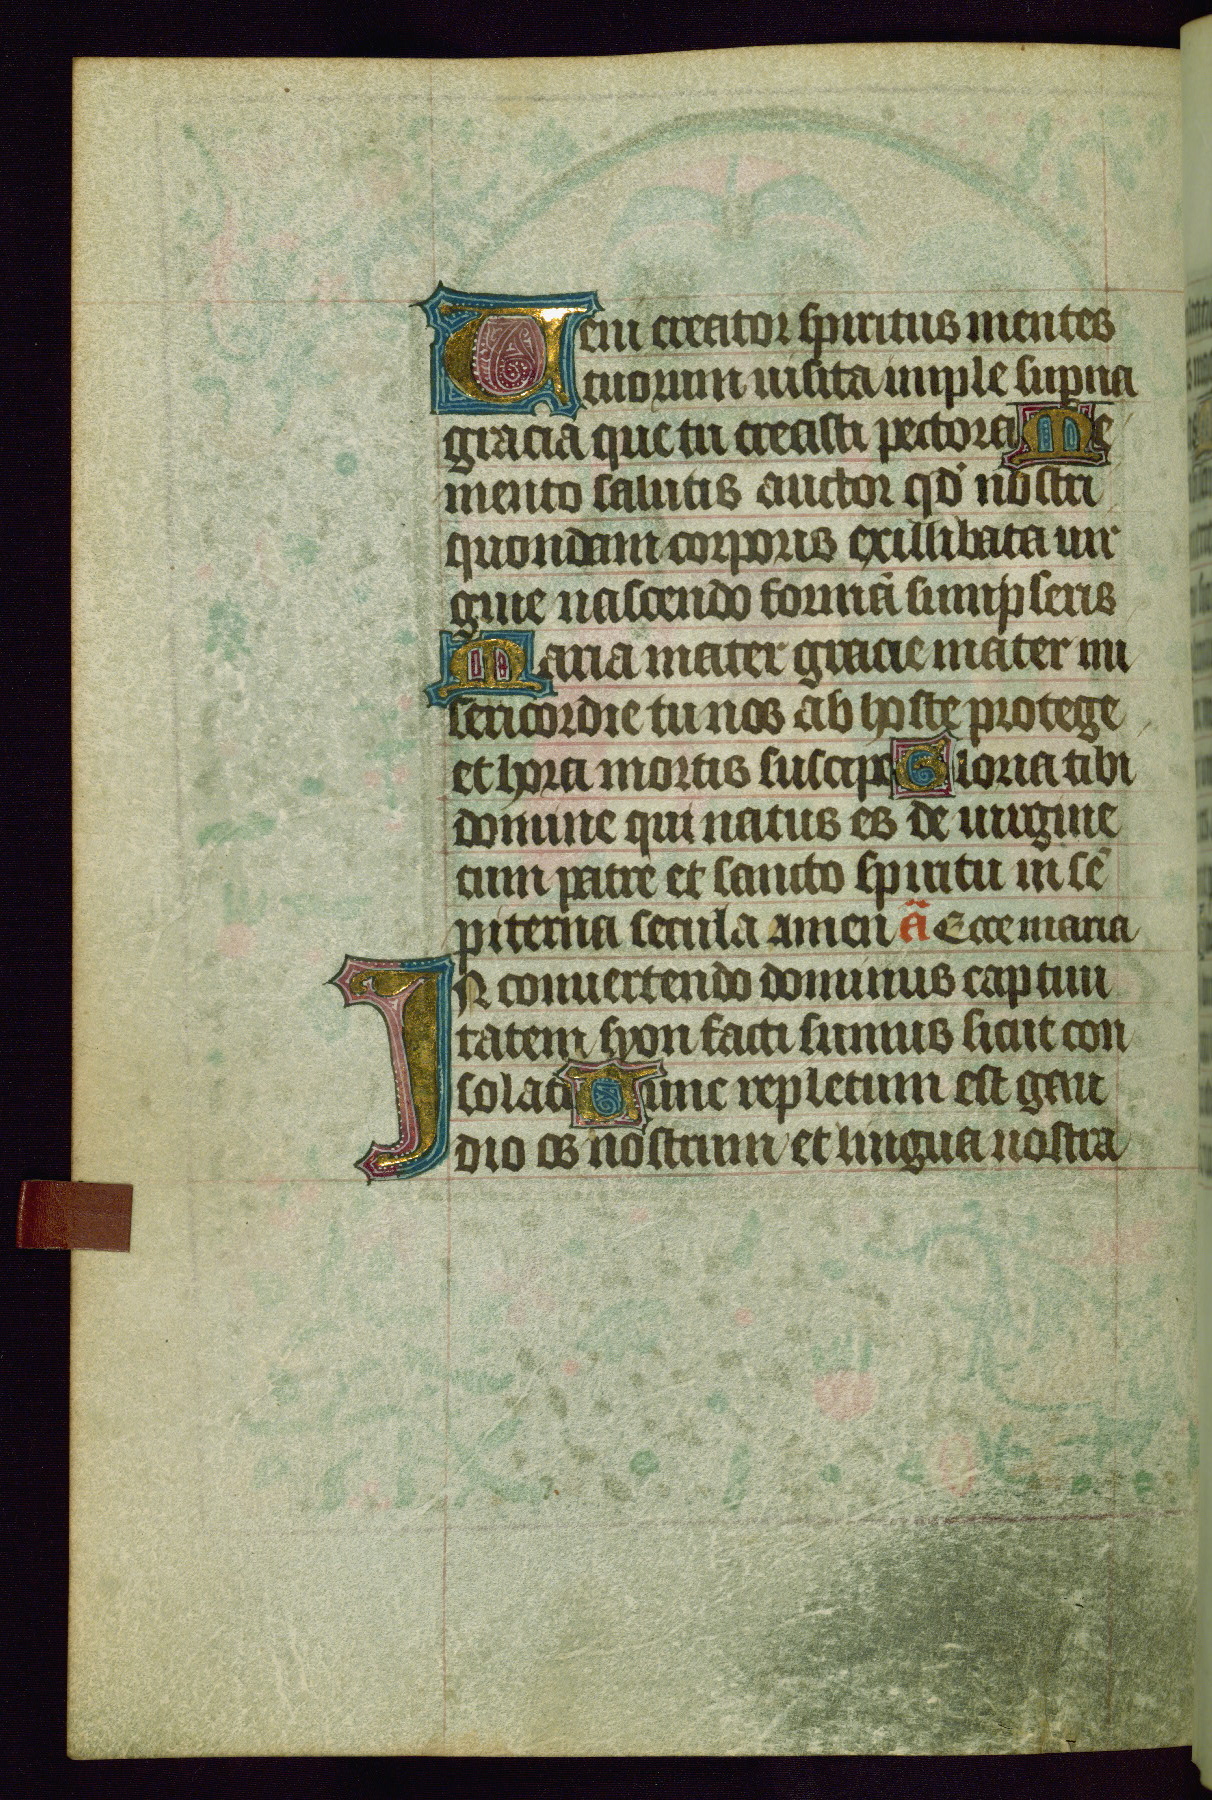 Ueni creator spiritus mentes
tuorum uisita imple supna
gracia que tu creasti pectora Me
mento salutis auctor qd nostri
quondam corporis exillibata uir
gine nascendo formā sumpseris
Maria mater gracie mater mi
sericordie tu nos ab hoste protege
et hora mortis suscipe Gloria tibi
domine qui natus es de uirgine
cum patre et sancto spiritu in sē
piterna secula amen ā Ecce maria
IN conuertendo dominus captiui
tatem syon facti sumus sicut con
solati Tunc repletum est gau
dio os nostrum et lingua nostra